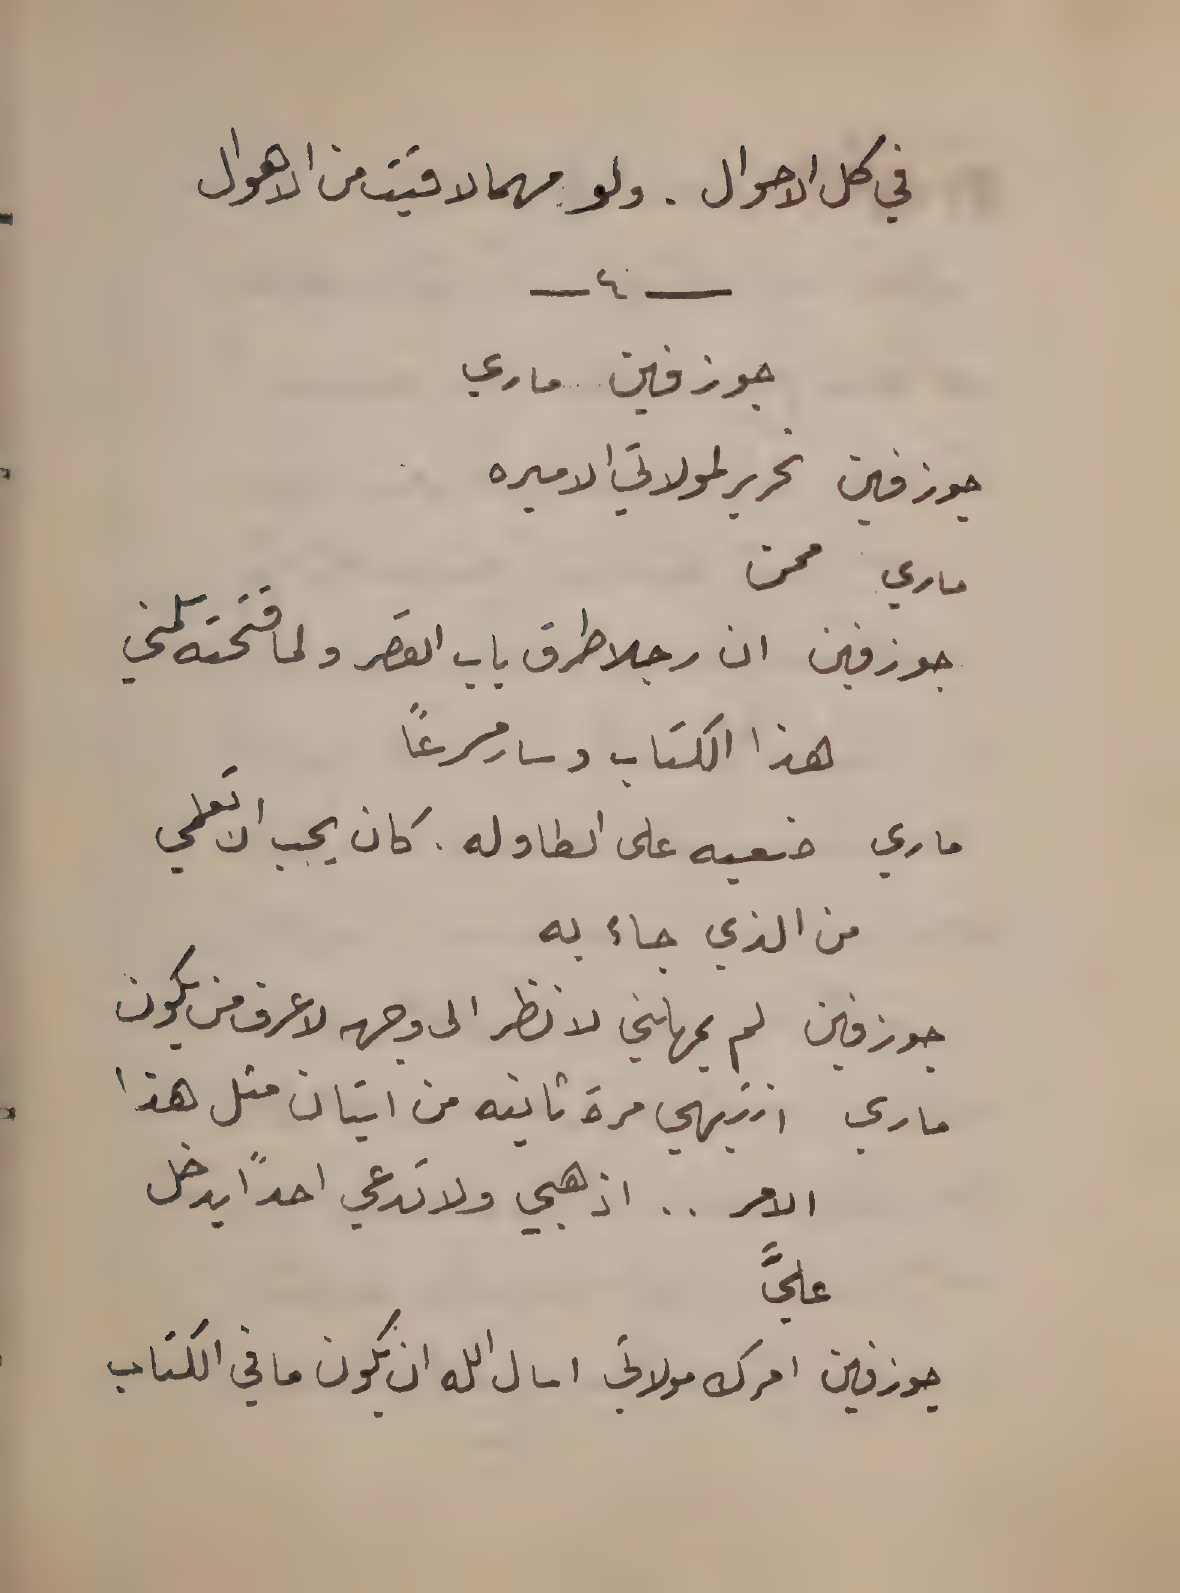 في كل الاحوال . ولو مهما لاقيت من الاهوال
— ٤ —
جوزفين ماري
جوزفين تحرير لمولاتي الاميره
ماري ممن
جوزفين ان رجلا طرق باب القصر ولما فتحته سلمني
هذا الكتاب وسار مسرعًا
ماري ضعيه على الطاوله . كان يجب الا تعلمي
من الذي جاء به
جوزفين لم يمهلني لانظر الى وجهه لاعرف من يكون
ماري انتبهي مرة ثانيه من اتيان مثل هذا
الامر .. اذهبي ولا تدعي احدًا يدخل
عليَّ
جوزفين امرك مولاتي اسال الله ان يكون ما في الكتاب